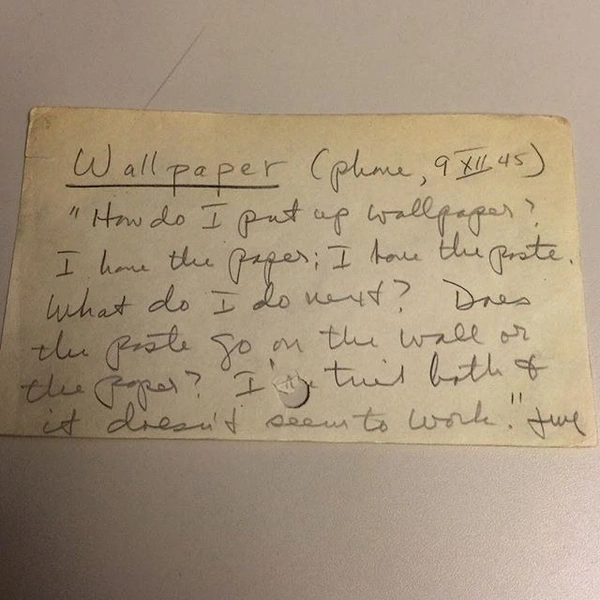 Wallpaper (phone, 9 XII 45)
"How do I put up wallpaper?
I have the paper; I have the paste.
What do I do next? Does
the paste go on the wall or
the paper? I've tried both &
it doesn't seem to work."